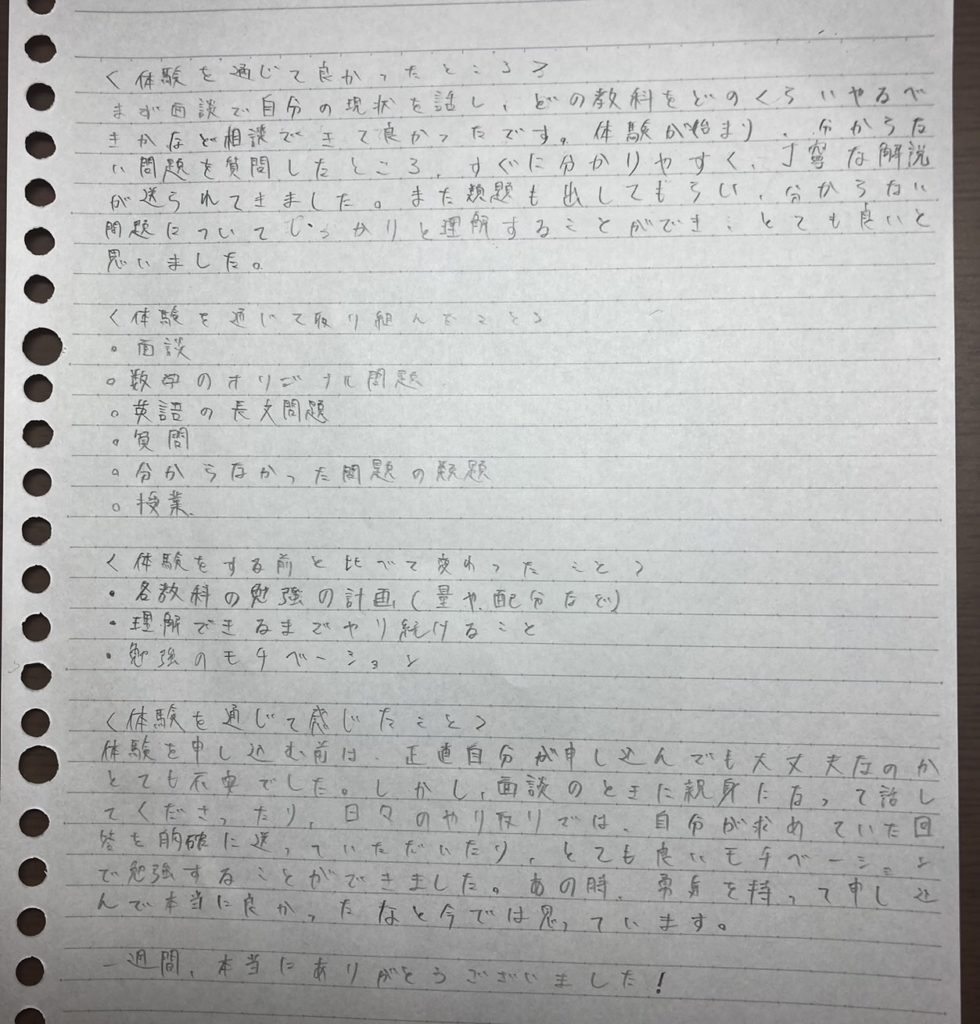 <体験を通じて良かったところ>
まず面談で自分の現状を話し、どの教科をどのくらいやるべ
きかなど相談できて良かったです。体験が始まり、分からな
い問題を質問したところ、すぐに分かりやすく、丁寧な解説
が送られてきました。また類題も出してもらい、分からない
問題についてしっかりと理解することができ、とても良いと
思いました。
<体験を通じて取り組んだこと>
・面談
・数学のオリジナル問題
・英語の長文問題
・質問
・分からなかった問題の類題
・授業
<体験をする前と比べて変わったこと>
・各教科の勉強の計画(量や配分など)
・理解できるまでやり続けること
・勉強のモチベーション
<体験を通じて感じたこと>
体験を申し込む前は、正直自分が申し込んでも大丈夫なのか
とても不安でした。しかし、面談のときに親身になって話し
てくださったり、日々のやり取りでは、自分が求めていた回
答を的確に送っていただいたり、とても良いモチベーション
で勉強することができました。あの時、勇気を持って申し込
んで本当に良かったなと今では思っています。
一週間、本当にありがとうございました!